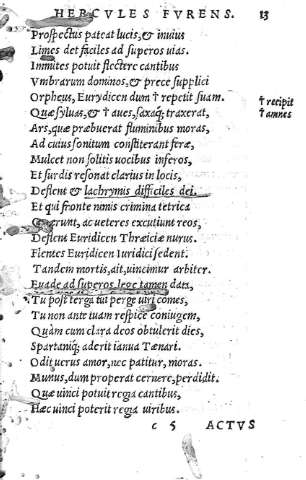 HERCVLES FVRENS. 13
Prospectus pateat lucis, & inuius
Limes det faciles ad superos uias.
Immites potuit flectere cantibus
Vmbrarum dominos, & prece supplici
Orpheus, Eurydicen dum † repetit suam.
† recipit
Quæ syluas, & † aues, saxaq; traxerat,
† amnes
Ars, quæ præbuerat fluminibus moras,
Ad cuius sonitum constiterant feræ,
Mulcet non solitis uocibus inferos,
Et surdis resonat clarius in locis,
Deflent & lachrymis difficiles dei.
Et qui fronte nimis crimina tetrica
Quærunt, ac ueteres excutiunt reos,
Deflent Euridicen Thraiciæ nurus.
Flentes Euridicen Iuridici sedent.
Tandem mortis, ait, uincimur arbiter.
Euade ad superos, lege tamen data,
Tu post terga tui perge uiri comes,
Tu non ante tuam respice coniugem,
Quàm cum clara deos obtulerit dies,
Spartaniq; aderit ianua Tænari.
Odit uerus amor, nec patitur, moras.
Munus, dum properat cernere, perdidit.
Quæ uinci potuit regia cantibus,
Hæc uinci poterit regia uiribus.
c 5 ACTVS